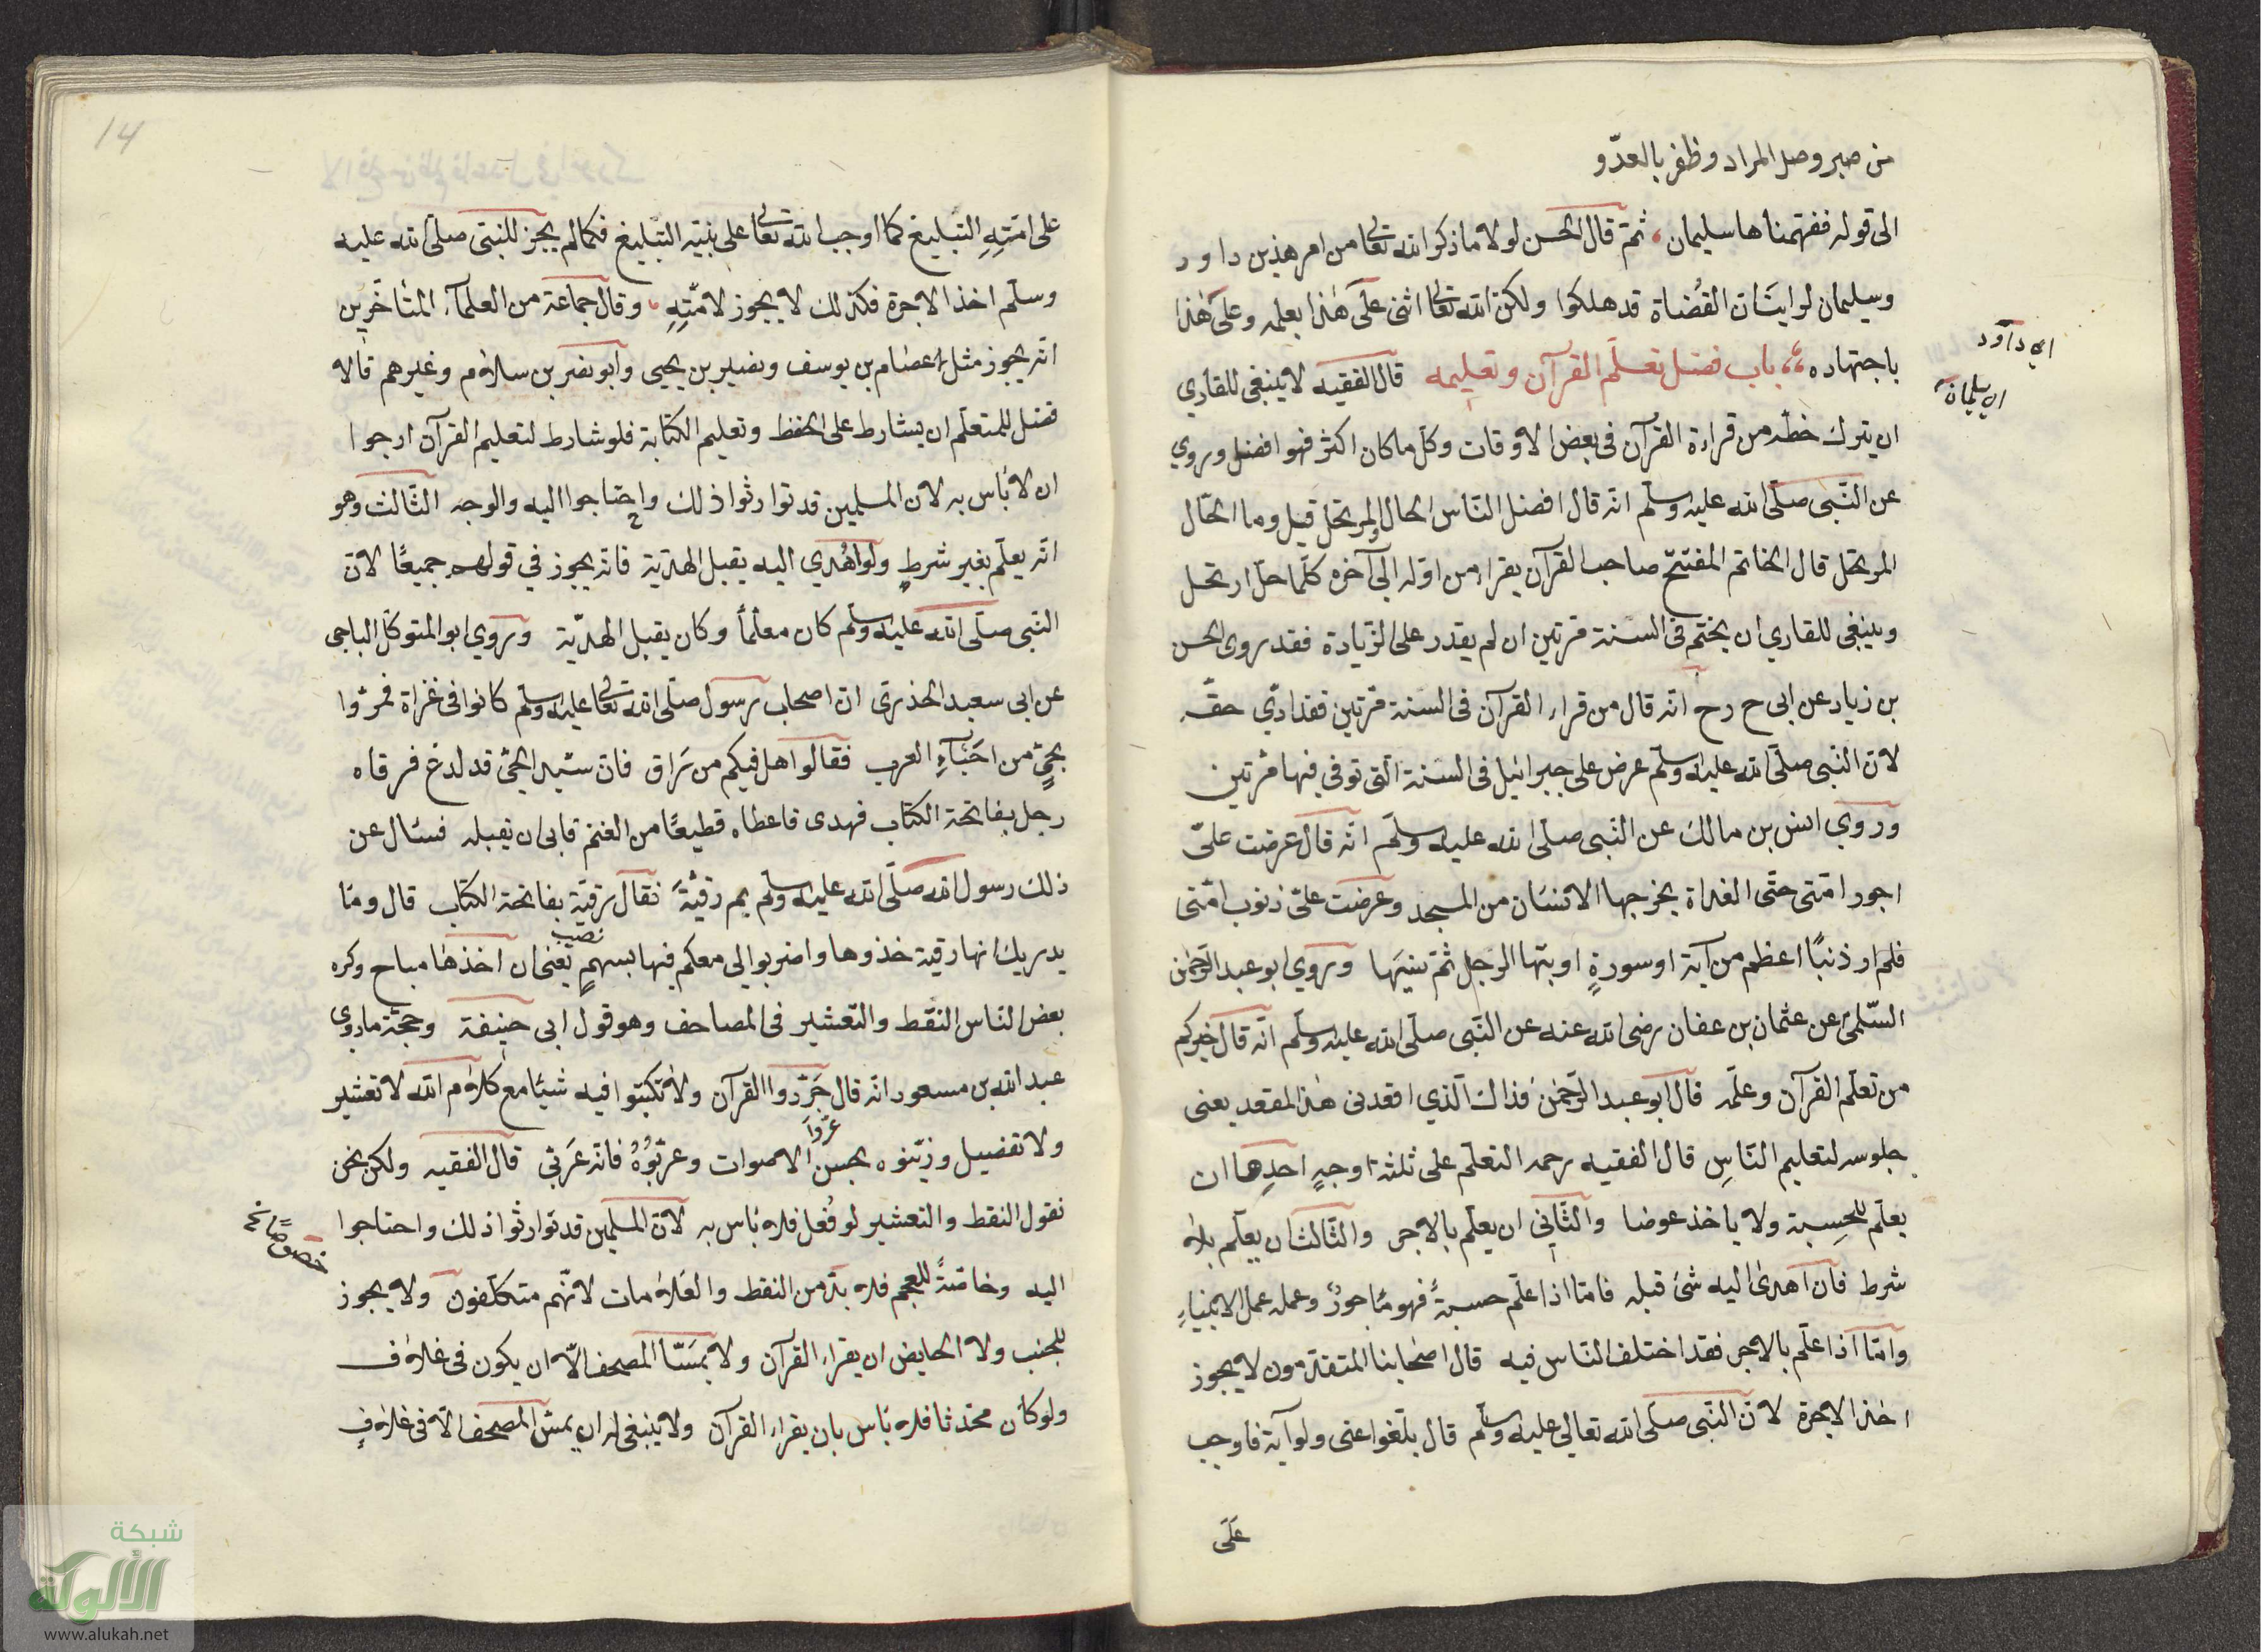 من صبر وصل المراد وظفر بالعدّو
الى قوله ففهمناها سليمان، ثمّ قال الحسن لولا ما ذكر الله تعالى من امر هذين داود
وسليمان لرايت ان القُضاة قد هلكوا ولكن الله تعالى اثنى على هٰذا بعلمه وعلى هٰذا
اى داود
اى سليمان
باجتهاده باب فضل تعلّم القرآن وتعليمه قال الفقيه لا ينبغى للقاري
ان يترك حظّه من قراءة القرآن فى بعض الاوقات وكلّ ما كان اكثر فهو افضل وروي
عن النّبى صلّى الله عليه وسلّم انّه قال افضل النّاس الحال والمرتحل قيل وما الحّال
المرتحل قال الخاتم المفتتح صاحب القرآن يقراء من اوّله الى آخره كلّما حلّ ارتحل
وينبغى للقاري ان يختم فى السّنة مرّتين ان لم يقدر على الزّيادة فقد روى الحسن
بن زياد عن ابى ح رح انّه قال من قراء القرآن فى السّنة مرّتين فقد ادّي حقّه
لانّ النّبى صلّى الله عليه وسلّم عرض على جبرائيل فى السّنة الّتى توفى فيها مرّتين
وروي انس بن مالك عن النّبى صلّى الله عليه وسلّم انّه قال عرضت علىّ
اجور امّتى حتّى القذاة يخرجها الانسان من المسجد وعرضت علىّ ذنوب امّتى
فلم ار ذنبًا اعظم من آية او سورةٍ اوتيها الرّجل ثمّ نسيَها وروي ابو عبد الرّحمٰن
السّلمىّ عن عثمان بن عفان رضى الله عنه عن النّبى صلّى الله عليه وسلّم انّه قال خيركم
من تعلّم القرآن وعلّمه قال ابو عبد الرّحمٰن فذاك الّذي اقعدنى هٰذا المقعد يعنى
جلوسه لتعليم النّاسِ قال الفقيه رحمه التعلّم على ثلثة اوجهٍ احدِها ان
يعلّم للحسِبة ولا ياخذ عوضا والثّاني ان يعلّم بالاجر والثّالث ان يعلّم بلا
شرط فان اهدىٰ اليه شئ قبله فامّا اذا علّم حسبةً فهو مٔاجورٌ وعمله عمل الانبياءِ
وامّا اذا علّم بالاجر فقد اختلف النّاس فيه قال اصحابنا المتقدّمون لا يجوز
اخذ الاجرة لانّ النّبى صلّى الله تعالى عليه وسلّم قال بلّغوا عنى ولو آية فاوجب
عَلَى
14
على امّتِهِ التّبليغ كما اوجب الله تعالى على نبيّه التّبليغ فكما لم يجز للنّبى صلّى الله عليه
وسلّم اخذ الاجرة فكذلك لا يجوز لامّتِهِ، وقال جماعة من العلمآء المتأخّرين
انّه يجوز مثل عصٰام بن يوسف ونصير بن يحيى وابو نصر بن سلام وغيرهم قالا
فضل للمتعلّم ان يشارط على الحفظ وتعليم الكتابة فلو شارط لتعليم القرآن ارجوا
ان لا بٔاس به لان المسلمين قد توارثوا ذلك واحتاجوا اليه والوجه الثّالث وهو
انّه يعلّم بغير شرطٍ ولو اهُدي اليه يقبل الهديّة فانّه يجوز في قولهم جميعًا لانّ
النّبى صلّى الله عليه وسلّم كان معلّمًا وكان يقبل الهديّة وروي ابو المتوكّل الباجى
عن ابى سعيد الخذرىّ انّ اصحاب رسول صلّى الله تعالى عليه وسلّم كانوا فى غزاة فمرّوا
بحىٍّ من احَيَآءِ العرب فقالوا هل فيكم من رَاق فانّ سيّد الحىّ قد لدغ فرقاه
رجل بفاتحة الكتاب فهدى فاعطاه قطيعًا من الغنم فابى ان يقبله فسئال عن
ذلك رسول الله صلّى الله عليه وسلّم بم رقيتَهُ فقال رقيته بفاتحة الكتاب قال ومٰا
يدريك انها رقية خذوها واضربوالى معكم فيها بسهمٍ يعنى ان اخذهٰا مباح وكره
نصيب
بعض النّاس النّقط والتّعشير فى المصاحف وهو قول ابى حنيفة وحجّته ما روي
عبد الله بن مسعود انّه قال جَرّدوا القرآن ولا تكتبوا فيه شيئا مع كلام الله لا تعشير
ولا تفضيل وزيّنوه بحسن الاصوات وعربّوُهُ فانّه عَربّى قال الفقيه ولكن نحن
نقول النقط والتعشير لو فُعل فلا بٔاس به لانّ المسلمين قد توارثوا ذلك واحتاجوا
اليه وخاصّةً للعجم فلا بدّ من النقط والعَلامات لانّهم متكلّفون ولا يجوز
للجنب ولا الحايض ان يقراء القرآن ولا يمَسّا المصحف الّا ان يكون فى غلاف
ولو كان محدثا فلا بٔاس بان يقراء القرآن ولا ينبغى له ان يمسّ المصحف الّا فى غلافٍ
شبكة
الألوكة
www.alukah.net